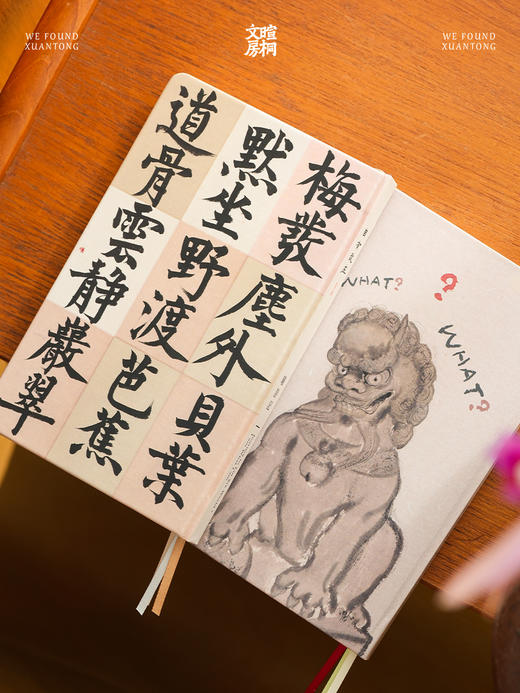 WE FOUND
XUANTONG
暄桐
文房
WE FOUND
XUANTONG
梅發
默坐
道骨
塵外
野渡
雲靜
貝葉
芭蕉
巖翠
WHAT?
?
WHAT?